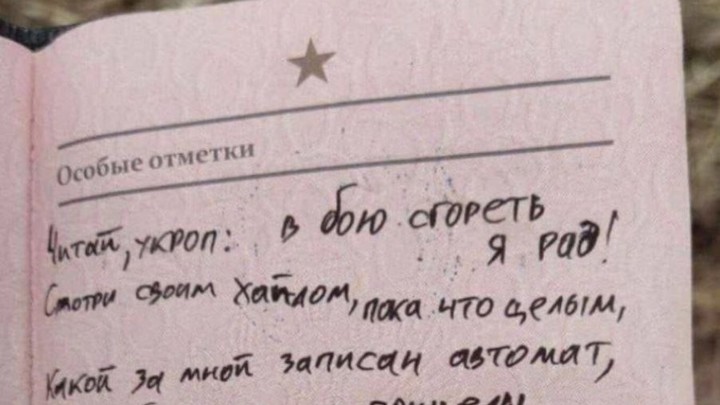 Особые отметки
Читай, укроп: в бою сгореть
я рад!
Смотри своим хайлом, пока что целым,
Какой за мной записан автомат,